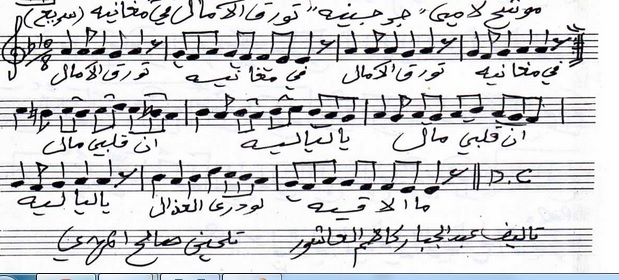 موشح لامي "جو حسينه" تورق الآمال في مغانيه (سويح)
تورق الآمال في مغانيه تورق الآمال في مغانيه
ان قلبي مال يا لياليه ان قلبي مال
يا لياليه لو درى العذال ما الاقيه D.C
تأليف عبدالجبار كاظم العاشور تلحين صالح المهدي